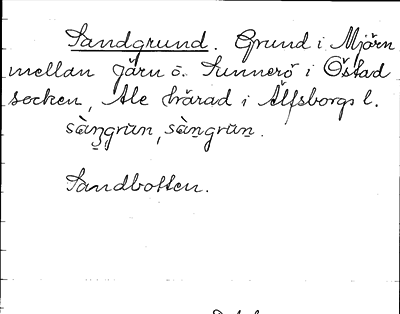 Sandgrund. Grund i Mjörn
mellan Järn o. Sunnerö i Östad
socken, Ale härad i Älfsborgs l.
sàngrun, sàngrun.
Sandbotten.